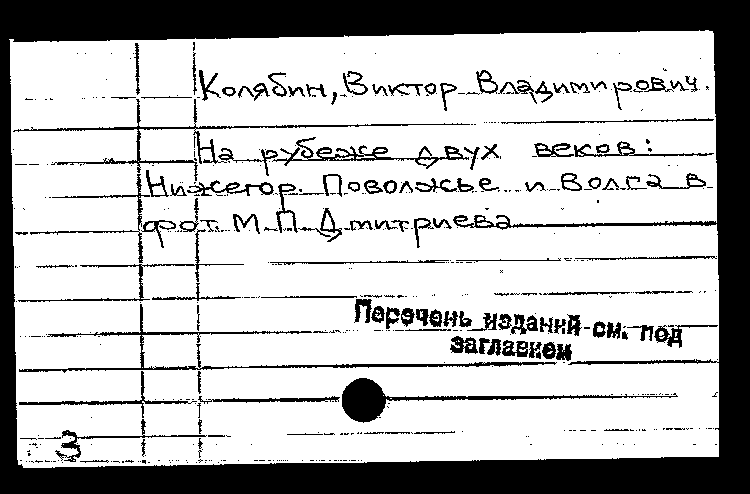 Колябин, Виктор Владимирович.
На рубеже двух веков:
Нижегор. Поволжье и Волга в
фот. М.П. Дмитриева
Перечень изданий см. под
заглавием
3